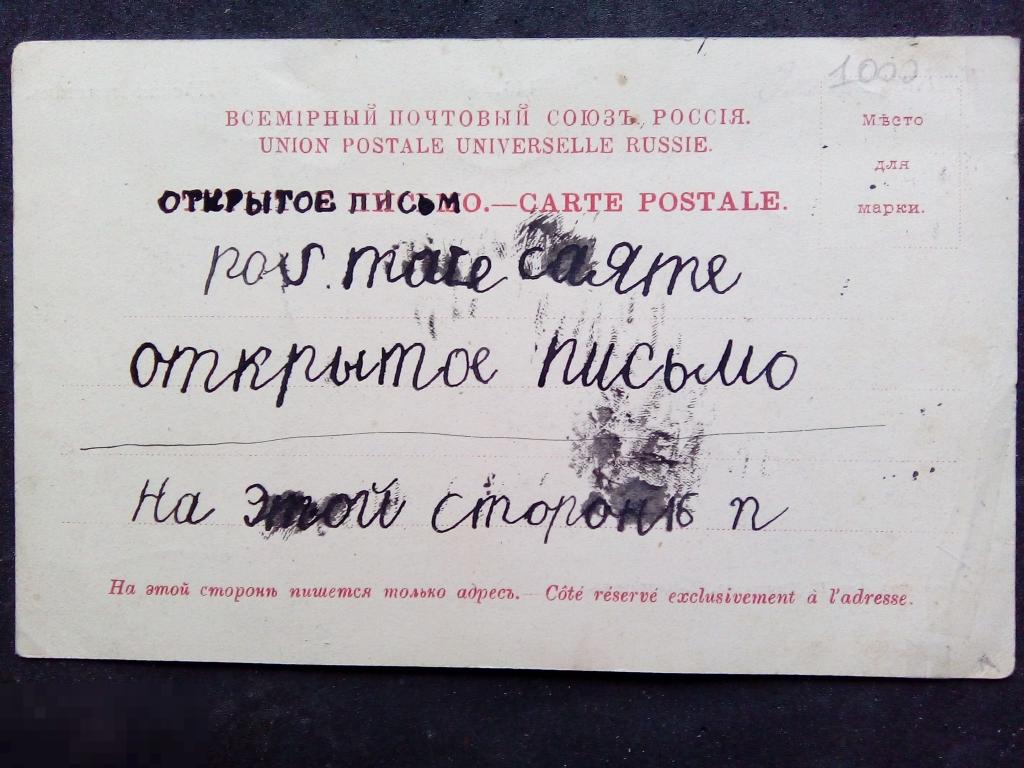 1000
ВСЕМІРНЫЙ ПОЧТОВЫЙ СОЮЗЪ. РОССІЯ.
UNION POSTALE UNIVERSELLE RUSSIE.
Мѣсто
для
марки.
ОТКРЫТОЕ ПИСЬМО.—CARTE POSTALE.
открытое письмо
На этой сторонѣ п
На этой сторонѣ пишется только адресъ.— Côté réservé exclusivement à l'adresse.